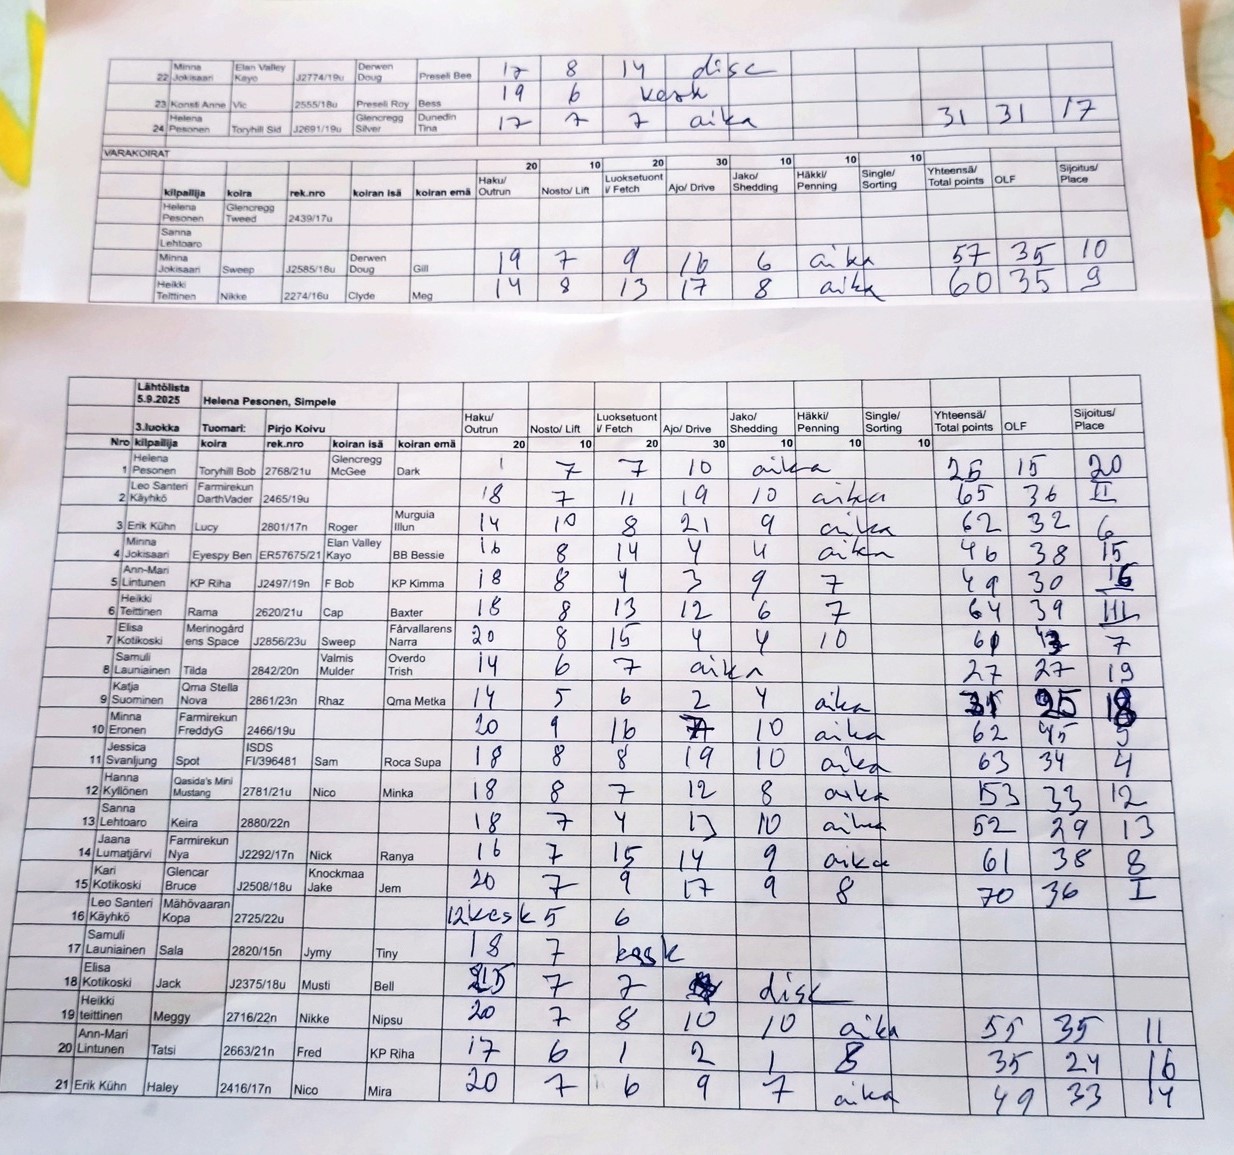 22 Minna Jokisaari Elan Valley Kayo J2774/19u Derwen Doug Preseli Bee 17 8 14 disc
23 Konsti Anne Vic 2555/18u Preseli Roy Bess 19 6 kesk
24 Helena Pesonen Toryhill Sid J2691/19u Glencregg Silver Dunedin Tina 17 7 7 aika 31 31 17
VARAKOIRAT
20 10 20 30 10 10 10
kilpailija koira rek.nro koiran isä koiran emä Haku/ Outrun Nosto/ Lift Luoksetuont i/ Fetch Ajo/ Drive Jako/ Shedding Häkki/ Penning Single/ Sorting Yhteensä/ Total points OLF Sijoitus/ Place
Helena Pesonen Glencregg Tweed 2439/17u
Sanna Lehtoaro
Minna Jokisaari Sweep J2585/18u Derwen Doug Gill 19 7 9 16 6 aika 57 35 10
Heikki Teittinen Nikke 2274/16u Clyde Meg 14 8 13 17 8 aika 60 35 9
Lähtölista 5.9.2025 Helena Pesonen, Simpele
3.luokka Tuomari: Pirjo Koivu Haku/ Outrun Nosto/ Lift Luoksetuont i/ Fetch Ajo/ Drive Jako/ Shedding Häkki/ Penning Single/ Sorting Yhteensä/ Total points OLF Sijoitus/ Place
Nro kilpailija koira rek.nro koiran isä koiran emä 20 10 20 30 10 10 10
1 Helena Pesonen Toryhill Bob 2768/21u Glencregg McGee Dark 1 7 7 10 aika 25 15 20
2 Leo Santeri Käyhkö Farmirekun DarthVader 2465/19u 18 7 11 19 10 aika 65 36 II
3 Erik Kühn Lucy 2801/17n Roger Murguia Illun 14 10 8 21 9 aika 62 32 6
4 Minna Jokisaari Eyespy Ben ER57675/21 Elan Valley Kayo BB Bessie 16 8 14 4 4 aika 46 38 15
5 Ann-Mari Lintunen KP Riha J2497/19n F Bob KP Kimma 18 8 4 3 9 7 49 30
6 Heikki Teittinen Rama 2620/21u Cap Baxter 18 8 13 12 6 7 64 39 III
7 Elisa Kotikoski Merinogård ens Space J2856/23u Sweep Fårvallarens Narra 20 8 15 4 4 10 61 43 7
8 Samuli Launiainen Tilda 2842/20n Valmis Mulder Overdo Trish 14 6 7 aika 27 27 19
9 Katja Suominen Qma Stella Nova 2861/23n Rhaz Qma Metka 14 5 6 2 4 aika 31 25 18
10 Minna Eronen Farmirekun FreddyG 2466/19u 20 9 16 7 10 aika 62 45 5
11 Jessica Svanljung Spot ISDS FI/396481 Sam Roca Supa 18 8 8 19 10 aika 63 34 4
12 Hanna Kyllönen Qasida's Mini Mustang 2781/21u Nico Minka 18 8 7 12 8 aika 153 33 12
13 Sanna Lehtoaro Keira 2880/22n 18 7 4 13 10 aika 52 29 13
14 Jaana Lumatjärvi Farmirekun Nya J2292/17n Nick Ranya 16 7 15 14 9 aika 61 38 8
15 Kari Kotikoski Glencar Bruce J2508/18u Knockmaa Jake Jem 20 7 9 17 9 8 70 36 I
16 Leo Santeri Käyhkö Mähövaaran Kopa 2725/22u 12 kesk 5 6
17 Samuli Launiainen Sala 2820/15n Jymy Tiny 18 7 kesk
18 Elisa Kotikoski Jack J2375/18u Musti Bell 7 7 disk
19 Heikki teittinen Meggy 2716/22n Nikke Nipsu 20 7 8 10 10 aika 55 35 11
20 Ann-Mari Lintunen Tatsi 2663/21n Fred KP Riha 17 6 1 2 1 8 35 24 16
21 Erik Kühn Haley 2416/17n Nico Mira 20 7 6 9 7 aika 49 33 14